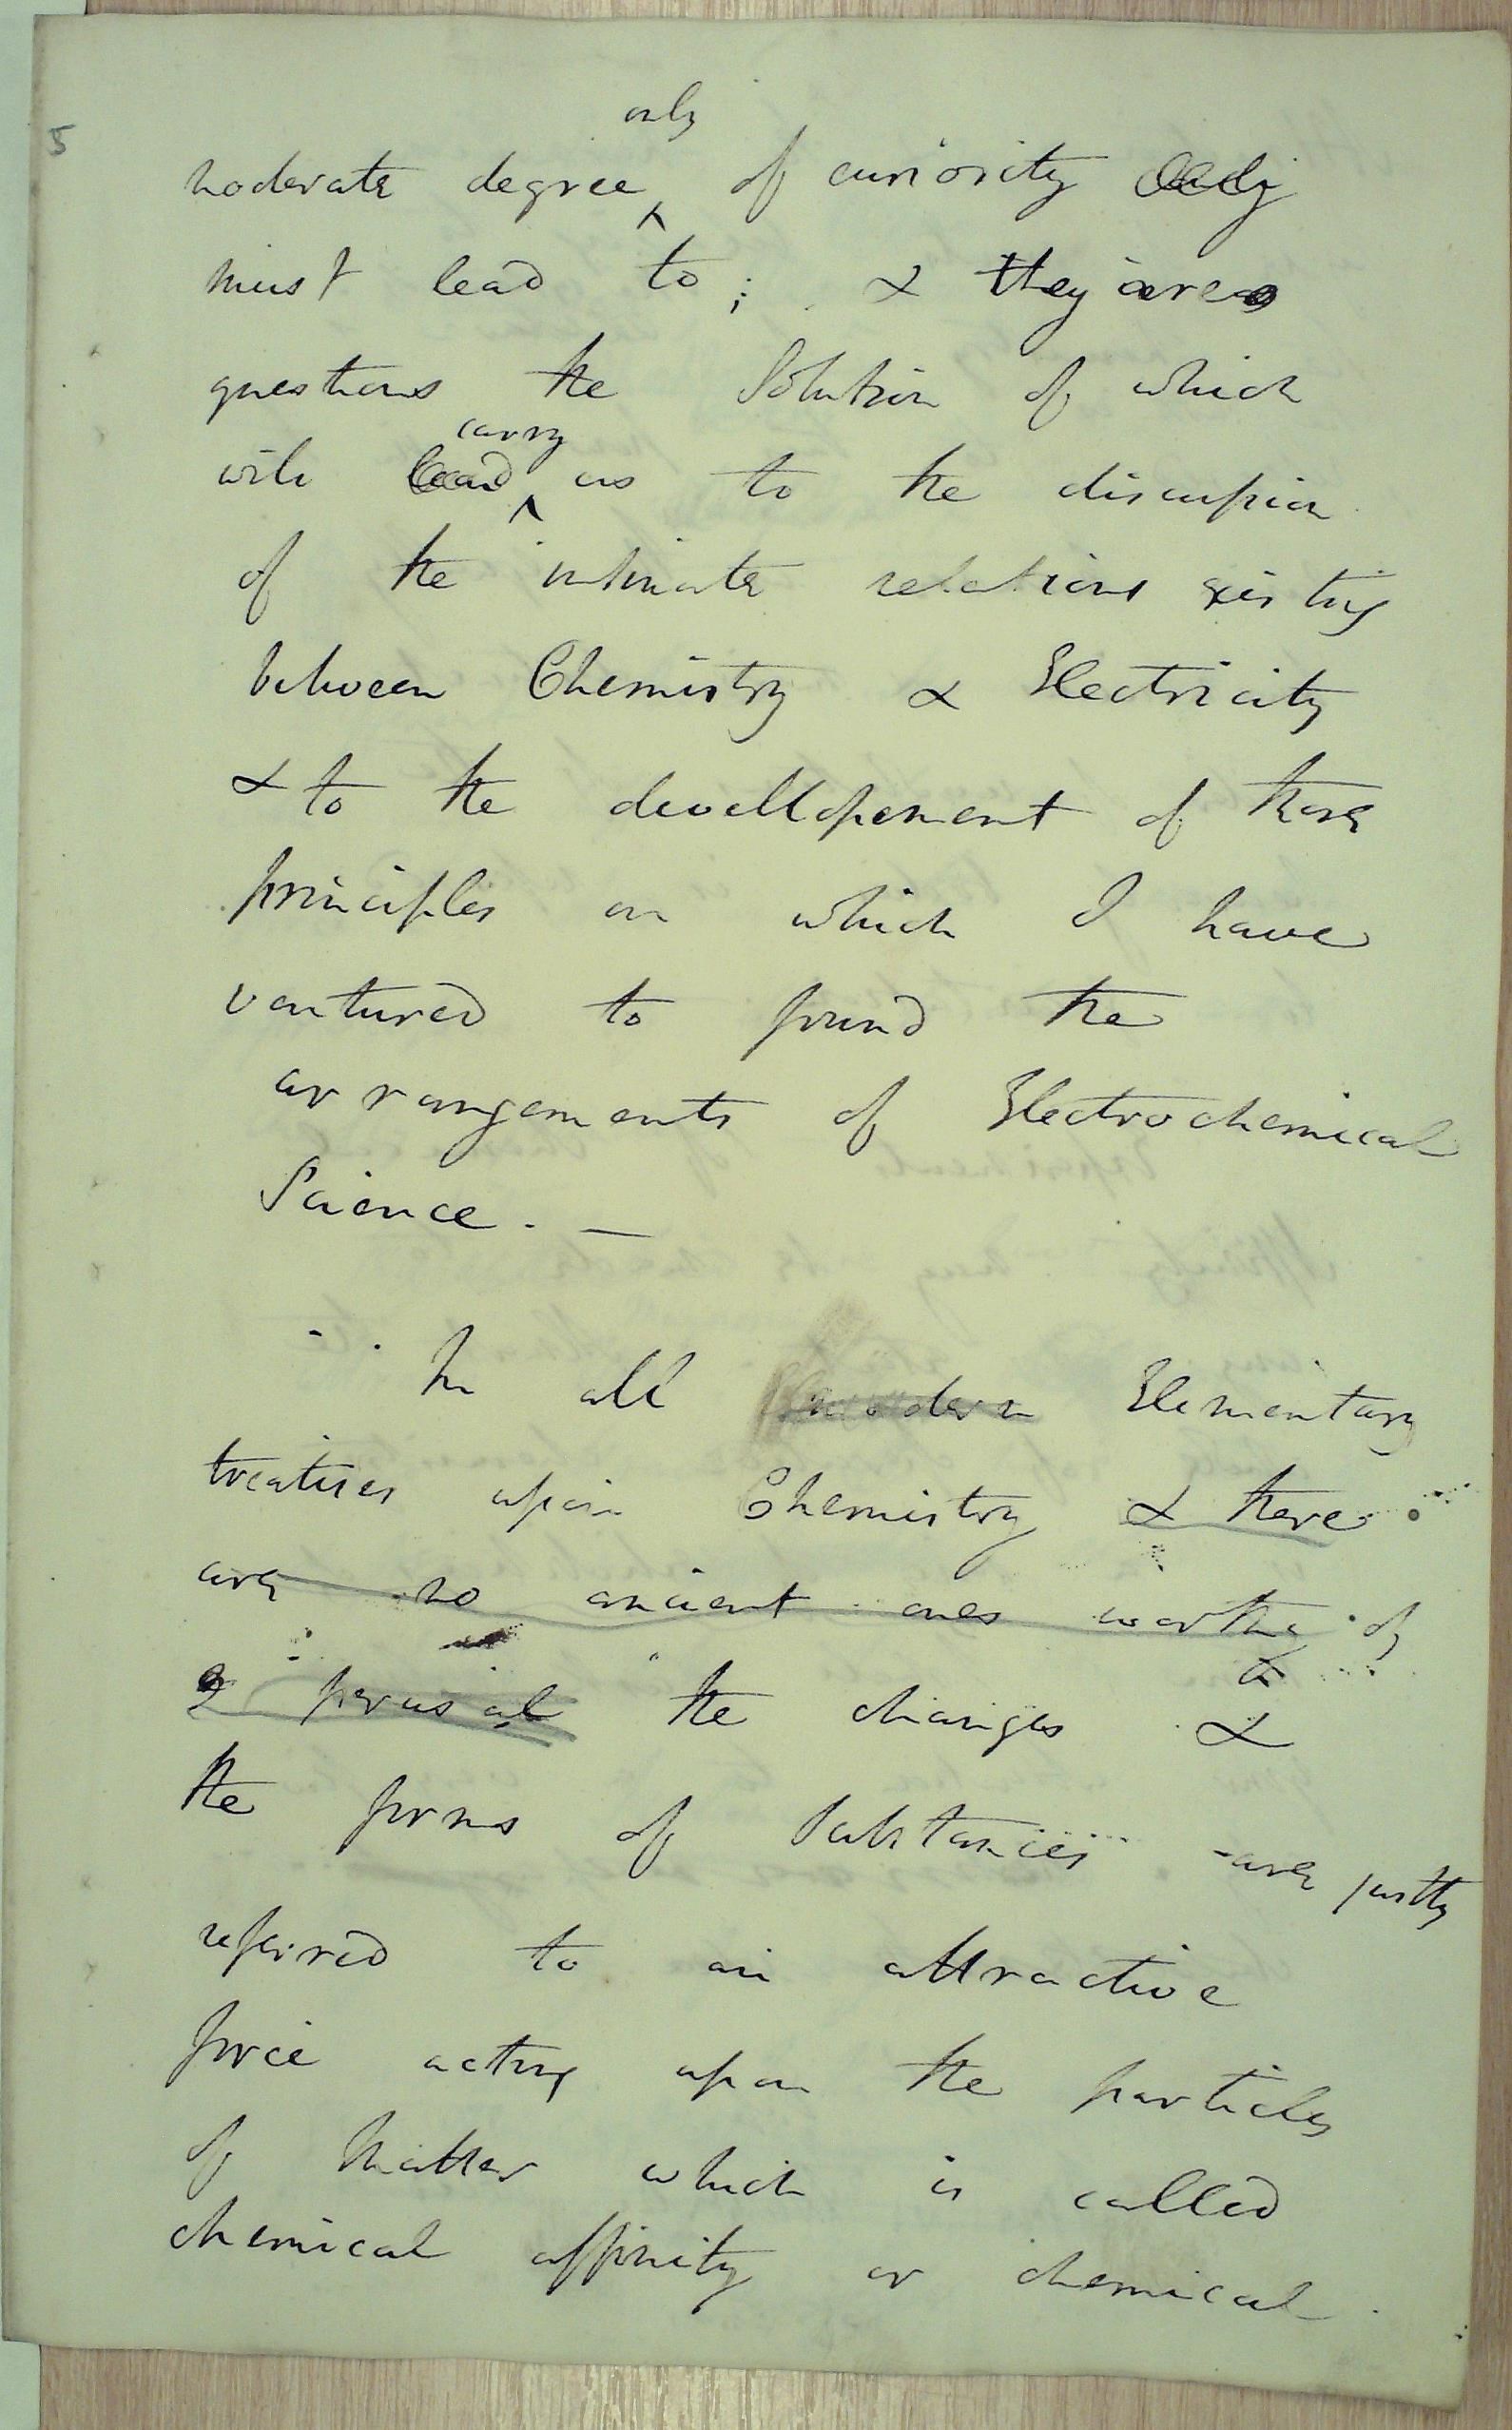 5
only
moderate degree ^ of curiosity only
must lead to; & they are
questions the Solution of which
carry
will lead ^ us to the discussion
of the intimate relations existing
between Chemistry & Electricity
& to the devellopement of those
principles on which I have
ventured to found the
arrangements of Electrochemical
Science. —
In all modern Elementary
treatises upon Chemistry & there
are no ancient ones worthy of
perusal the changes &
the forms of Substances are justly
referred to an attractive
force acting upon the particles
of Matter which is called
chemical affinity or chemical